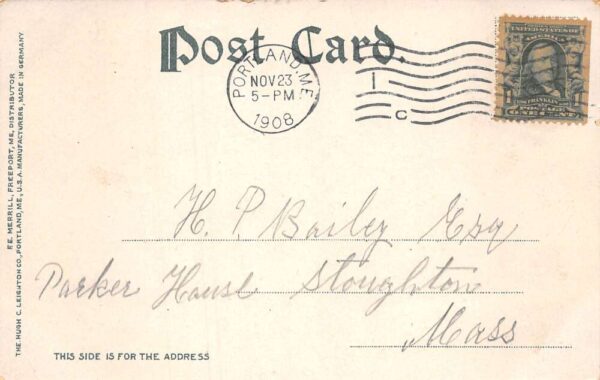 Post Card.
PORTLAND, ME.
NOV 23
5-PM
1908
1
C
UNITED STATES OF
AMERICA
FRANKLIN
ONE CENT
H. P. Bailey Esq
Parker House Stoughton
Mass
THIS SIDE IS FOR THE ADDRESS
F.E. MERRILL, FREEPORT, ME, DISTRIBUTOR
THE HUGH C. LEIGHTON CO., PORTLAND, ME., U.S.A. MANUFACTURERS, MADE IN GERMANY